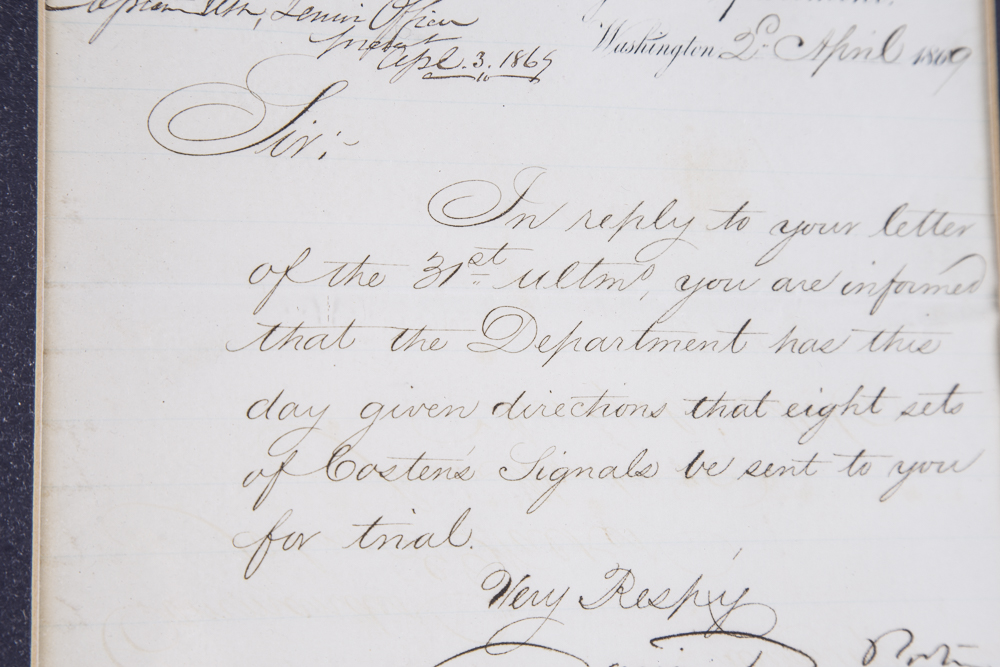 Senior Officer
Apl. 3. 1869
Washington 2d April 1869
Sir;-
In reply to your letter
of the 31st ultmo, you are informed
that the Department has this
day given directions that eight sets
of Costen's Signals be sent to you
for trial.
Very Respy